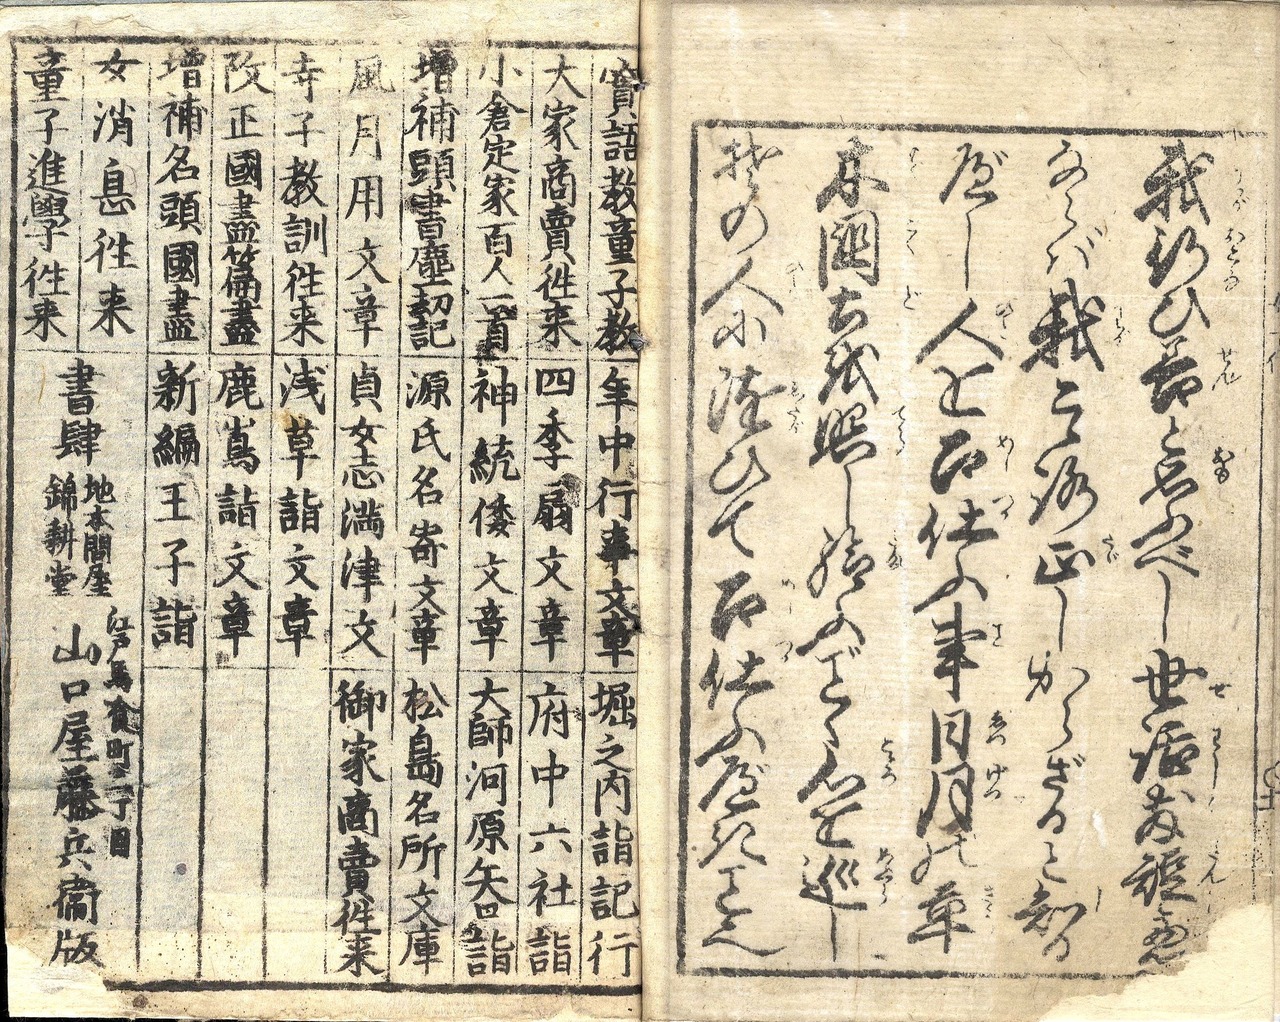 我行ひ善と思ふべし世話敷
ならバ我こゝろ正しからざると知る
べし人を召仕ふ事日月の草
木国土を照し給ふごとく心を巡し
其の人に随ひて召仕ふべきこと
實語教童子教
大家商賣徃来
小倉定家百人一首
増補頭書塵劫記
風月用文章
寺子教訓徃来
改正國盡篇盡
増補名頭國盡
女消息徃来
童子進學徃来
年中行事文章
四季扇文章
神統倭文章
源氏名寄文章
貞女志満津文
浅草詣文章
鹿嶌詣文章
新編王子詣
堀之内詣記行
府中六社詣
大師河原矢口詣
松島名所文庫
御家商賣徃来
書肆
地本問屋
錦耕堂
江戸馬喰町二丁目
山口屋藤兵衞版